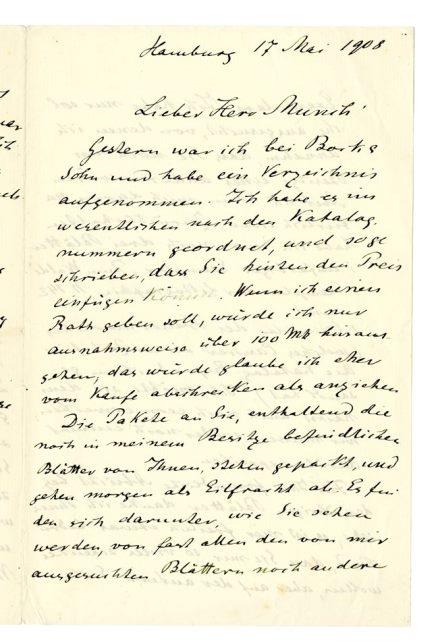 Hamburg 17 Mai 1908
Lieber Herr Munch!
Gestern war ich bei Bock &
Sohn und habe ein Verzeichnis
aufgenommen. Ich habe es im
wesentlichen nach den Katalog-
nummern geordnet, und so ge
schrieben, dass Sie hinten den Preis
einfügen können. Wenn ich einen
Rath geben soll, würde ich nur
ausnahmsweise über 100 Mk hinaus
gehen, das würde glaube ich eher
vom Kaufe abschrecken als anziehen
Die Pakete an Sie, enthaltend die
noch in meinem Besitze befindlichen
Blätter von Ihnen, stehen gepackt, und
gehen morgen als Eilfracht ab. Es fin
den sich darunter, wie Sie sehen
werden, von fast allen den von mir
ausgesuchten Blättern noch andere